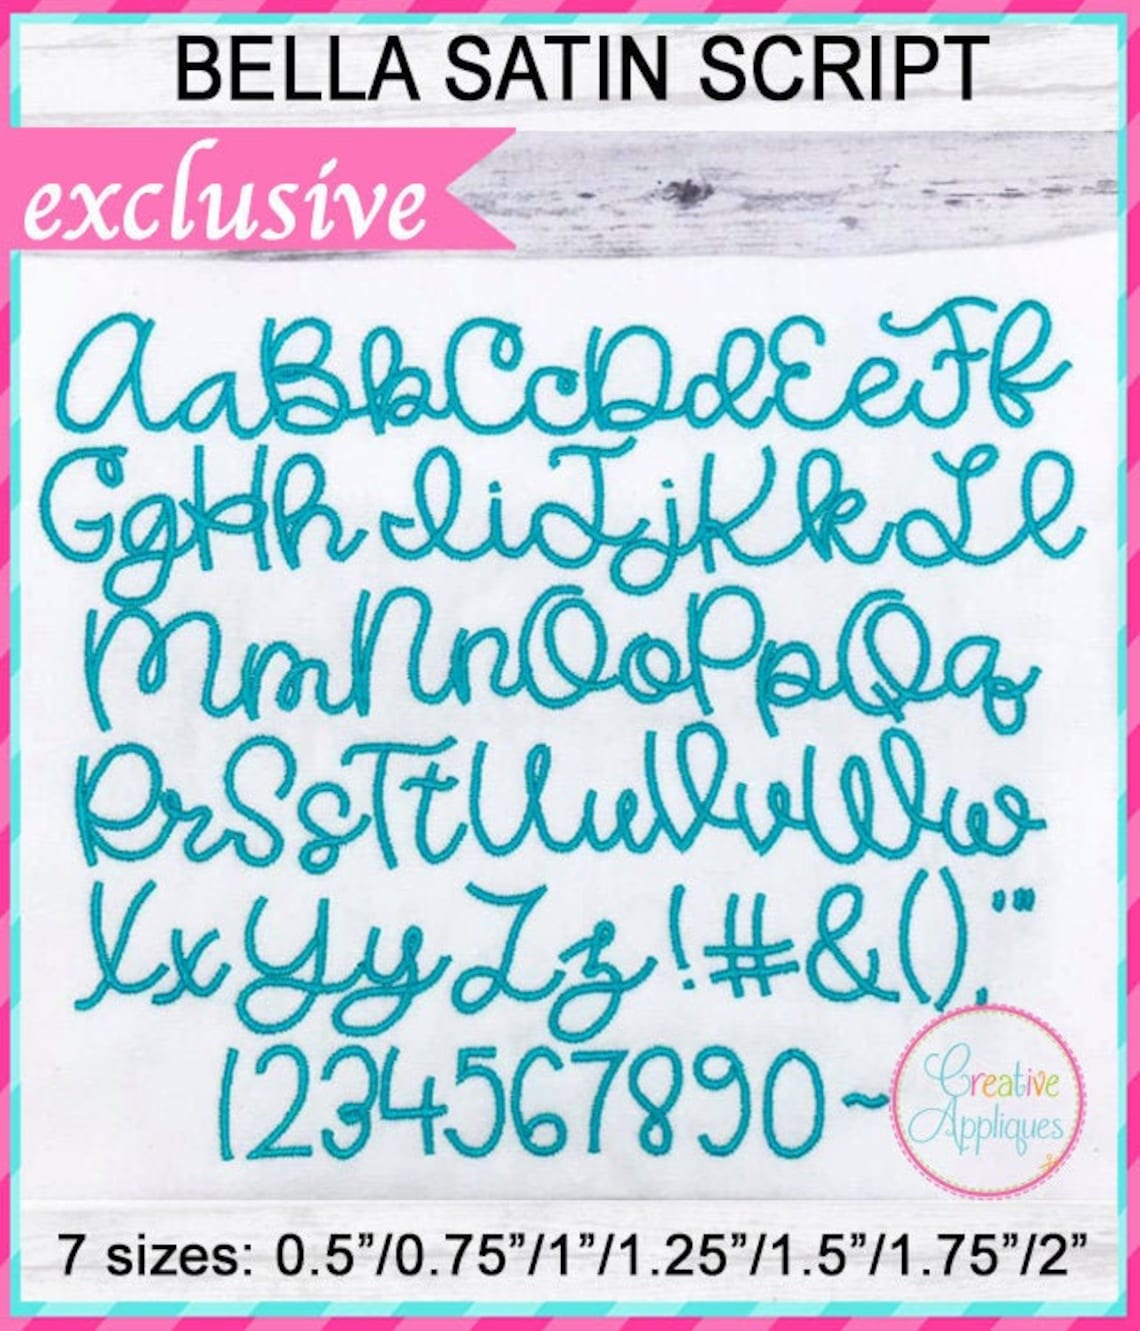 BELLA SATIN SCRIPT
exclusive
AaBbCcDdEeFf
GgHhIiJjKkLl
MmNnOoPpQq
RrSsTtUuVvWw
XxYyZz!#&(),'"
1234567890~
Creative
Appliques
7 sizes: 0.5”/0.75”/1”/1.25”/1.5”/1.75”/2”